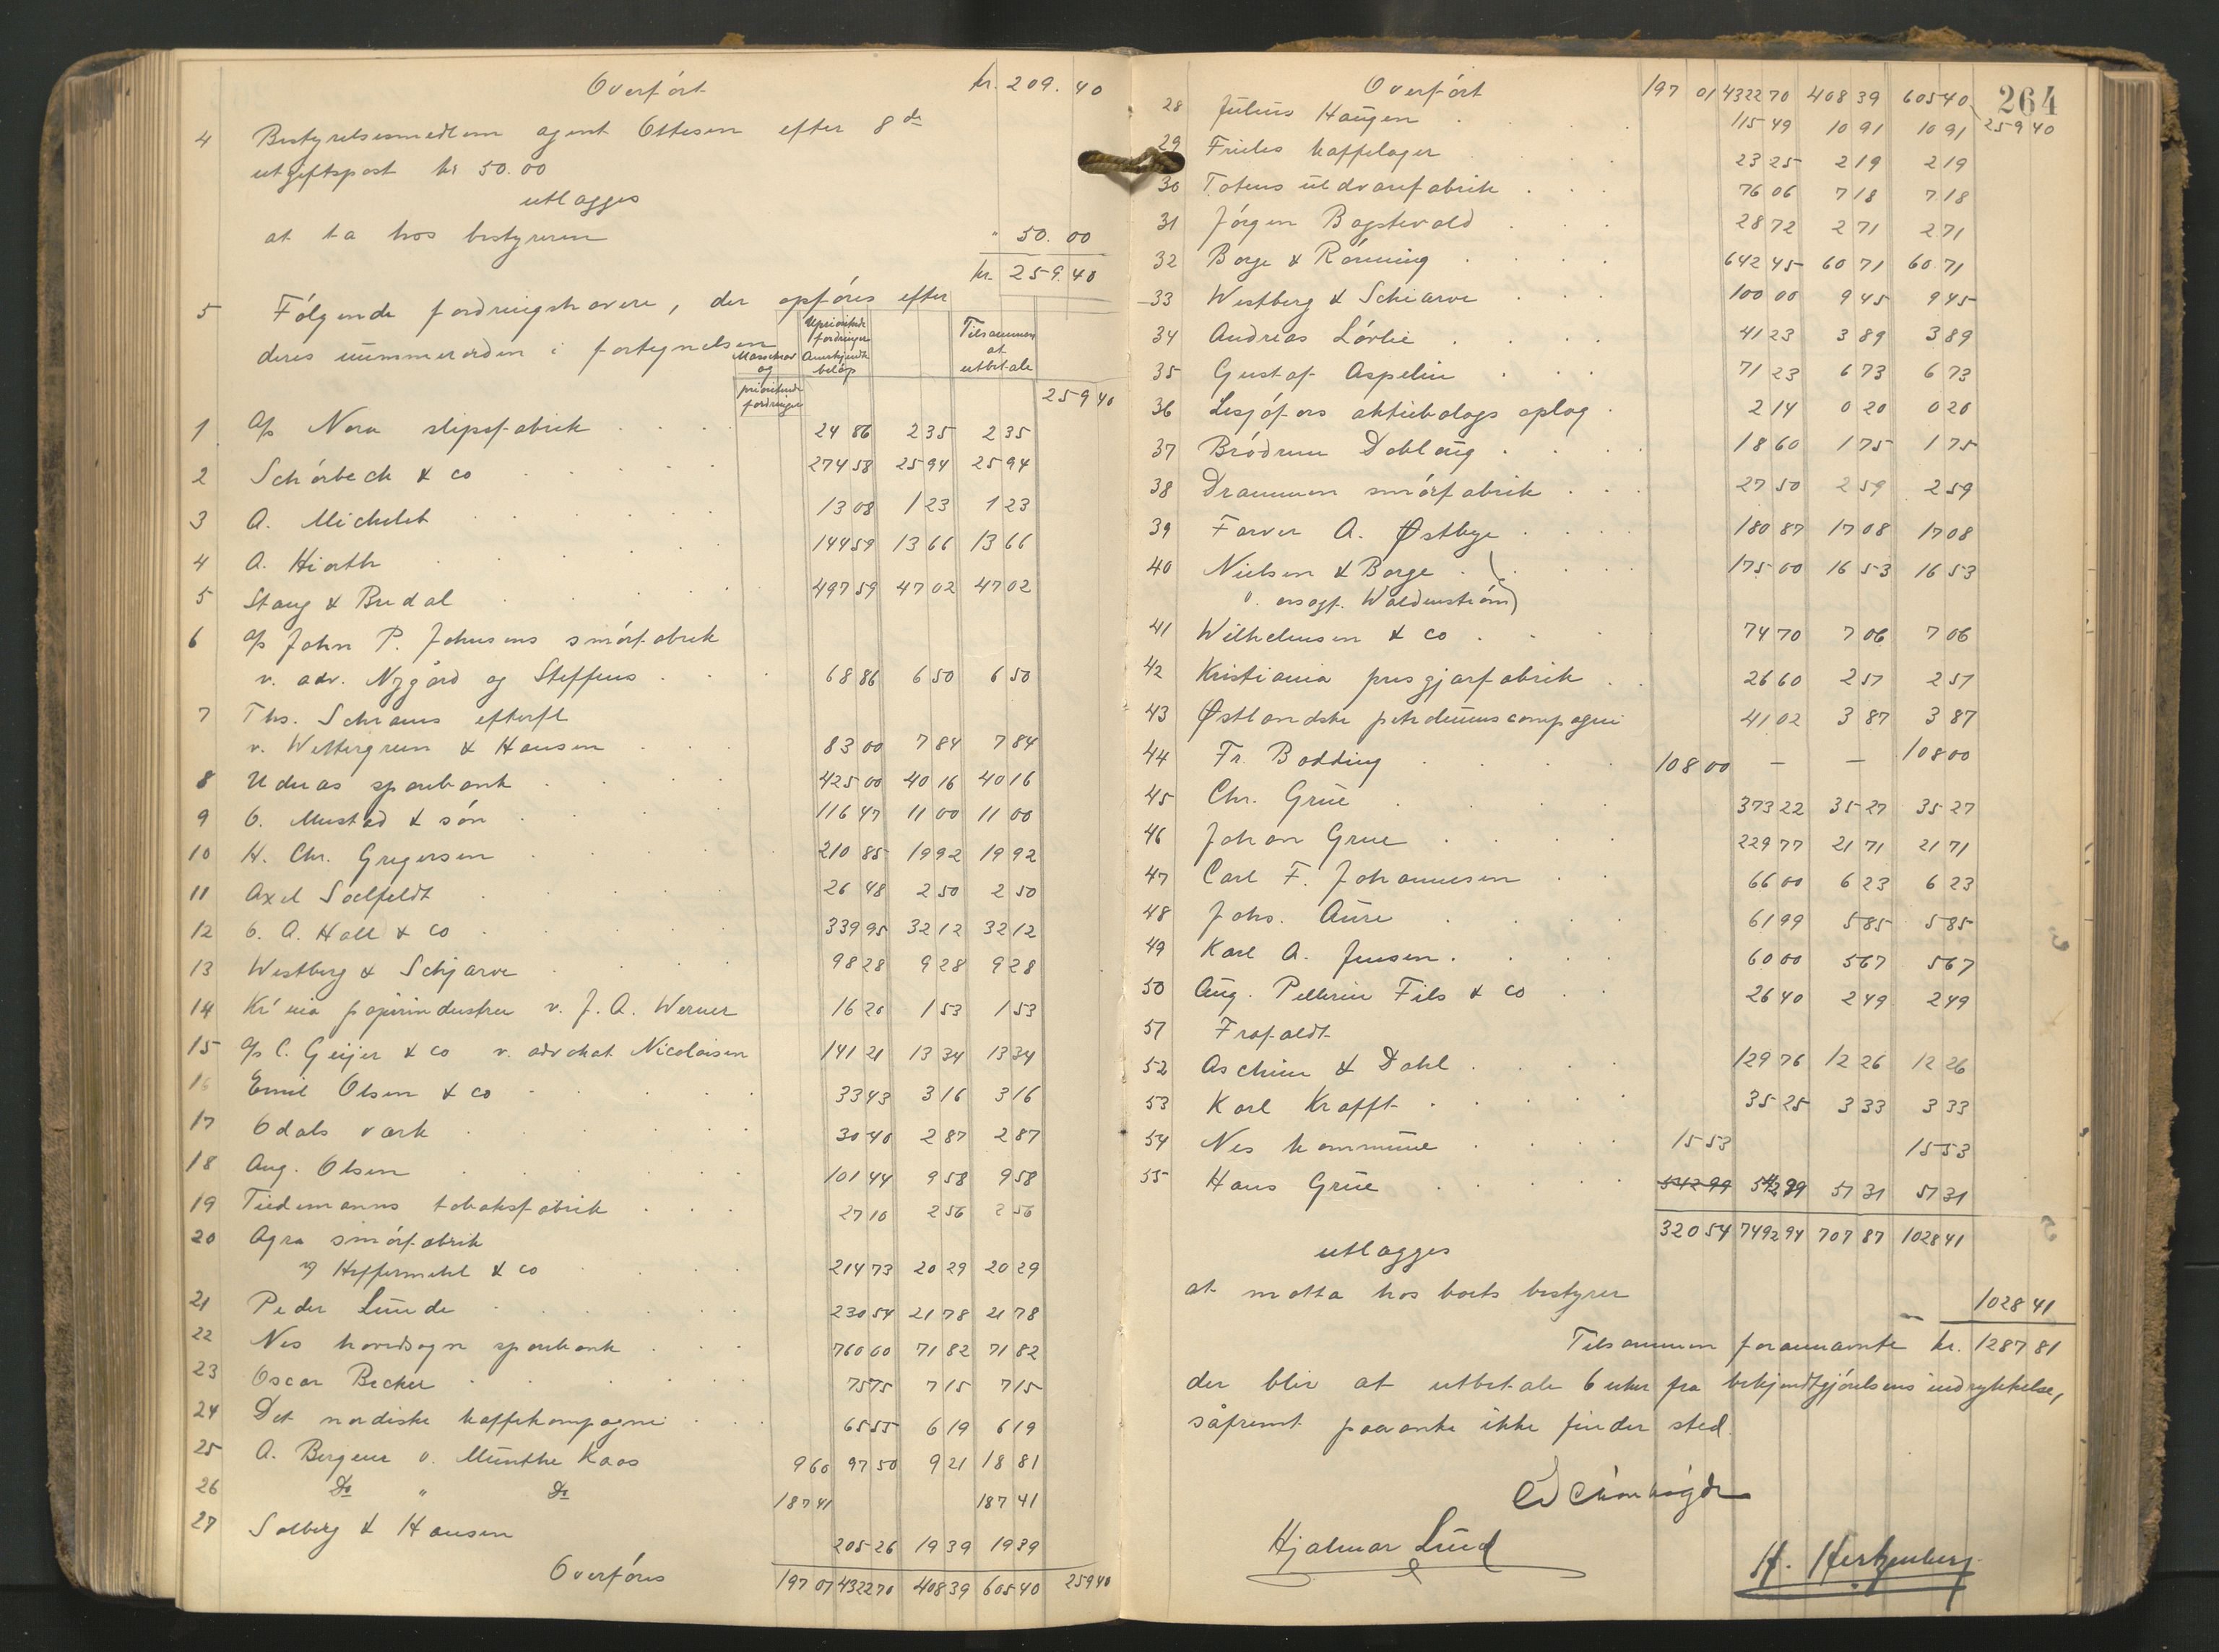 Overfört kr. 209.40
4 Bestyrelsesmedlem agent Ottesen efter 8de
utgiftspost kr 50.00
utlægges
at ta hos bestyreren " 50.00
kr. 259.40
5 Følgende fordringshavere, der opføres efter
deres nummerorden i fortegnelsen
Massekrav og prioriterte fordringer
Uprioriterte fordringer Anerkjendt beløp
Tilsammen at utbetale
259 40
1 A/s Nora slipsfabrik 24 86 2 35 2 35
2 Schörbeck & co 274 58 25 94 25 94
3 A. Michelet 13 08 1 23 1 23
4 A. Hiorth 144 59 13 66 13 66
5 Stang & Bredal 497 59 47 02 47 02
6 A/s John P. Johnsens smörfabrik
v. adv. Nygård og Steffens 68 86 6 50 6 50
7 Ths. Schrams efterfl
v. Wettergreen & Hansen 83 00 7 84 7 84
8 Udnæs sparebank 425 00 40 16 40 16
9 O. Mustad & sön 116 47 11 00 11 00
10 H. Chr. Gregersen 210 85 19 92 19 92
11 Axel Soelfeldt 26 48 2 50 2 50
12 O. A. Hall & co 339 95 32 12 32 12
13 Westberg & Schjarve 98 28 9 28 9 28
14 Kr'nia papirindustri v. J. A. Werner 16 20 1 53 1 53
15 A/s C. Geijer & co v. advokat Nicolaisen 141 21 13 34 13 34
16 Emil Olsen & co 33 43 3 16 3 16
17 Odals værk 30 40 2 87 2 87
18 Aug. Olsen 101 44 9 58 9 58
19 Tiedemanns tobaksfabrik 27 10 2 56 2 56
20 Agra smörfabrik
v/ Heffermehl & co 214 73 20 29 20 29
21 Peder Lunde 230 54 21 78 21 78
22 Nes hovedsogn sparebank 760 00 71 82 71 82
23 Oscar Becker 75 75 7 15 7 15
24 Det nordiske kaffekompagni 65 55 6 19 6 19
25 A. Bergene v. Munthe Kaas 9 60 97 50 9 21 18 81
26 Do " Do 187 41 187 41
27 Solberg & Hansen 205 26 19 39 19 39
Overföres 197 01 4322 70 408 39 605 40 259 40
264
Overfört 197 01 4322 70 408 39 605 40 259 40
28 Julius Haugen 115 49 10 91 10 91
29 Frieles kaffelager 23 25 2 19 2 19
30 Totens uldvarefabrik 76 06 7 18 7 18
31 Jörgen Bagstevold 28 72 2 71 2 71
32 Borge & Rönning 642 45 60 71 60 71
33 Westberg & Schiarve 100 00 9 45 9 45
34 Andreas Lövlie 41 23 3 89 3 89
35 Gustaf Aspelin 71 23 6 73 6 73
36 Lesjöfors aktiebolags oplag 2 14 0 20 0 20
37 Brödrene Doblaug 18 60 1 75 1 75
38 Drammen smörfabrik 27 50 2 59 2 59
39 Farver A. Østbye 180 87 17 08 17 08
40 Nielsen & Borge 175 00 16 53 16 53
(v. orsagf. Waldenström)
41 Wilhelmsen & co 74 70 7 06 7 06
42 Kristiania presgjærfabrik 26 60 2 51 2 51
43 Østlandske petroleumscompagni 41 02 3 87 3 87
44 Fr. Bodding 108 00 — — 108 00
45 Chr. Grue 373 22 35 27 35 27
46 Johan Grue 229 77 21 71 21 71
47 Carl F. Johannesen 66 00 6 23 6 23
48 Johs. Aure 61 99 5 85 5 85
49 Karl A. Jensen 60 00 5 67 5 67
50 Aug. Pellerin Fils & co 26 40 2 49 2 49
51 Frafaldt
52 Aschim & Dahl 129 76 12 26 12 26
53 Karl Krafft 35 25 3 33 3 33
54 Nes kommune 15 53 15 53
55 Hans Grue 542 99 542 99 51 31 51 31
320 54 7492 94 707 87 1028 41
utlægges
at motta hos boets bestyrer 1028 41
Tilsammen forannævnte kr. 1287 81
der blir at utbetale 6 uker fra bekjendtgjörelsens indrykkelse,
såfremt paaanke ikke finder sted.
Hjalmar Lund
H. Hertzenberg